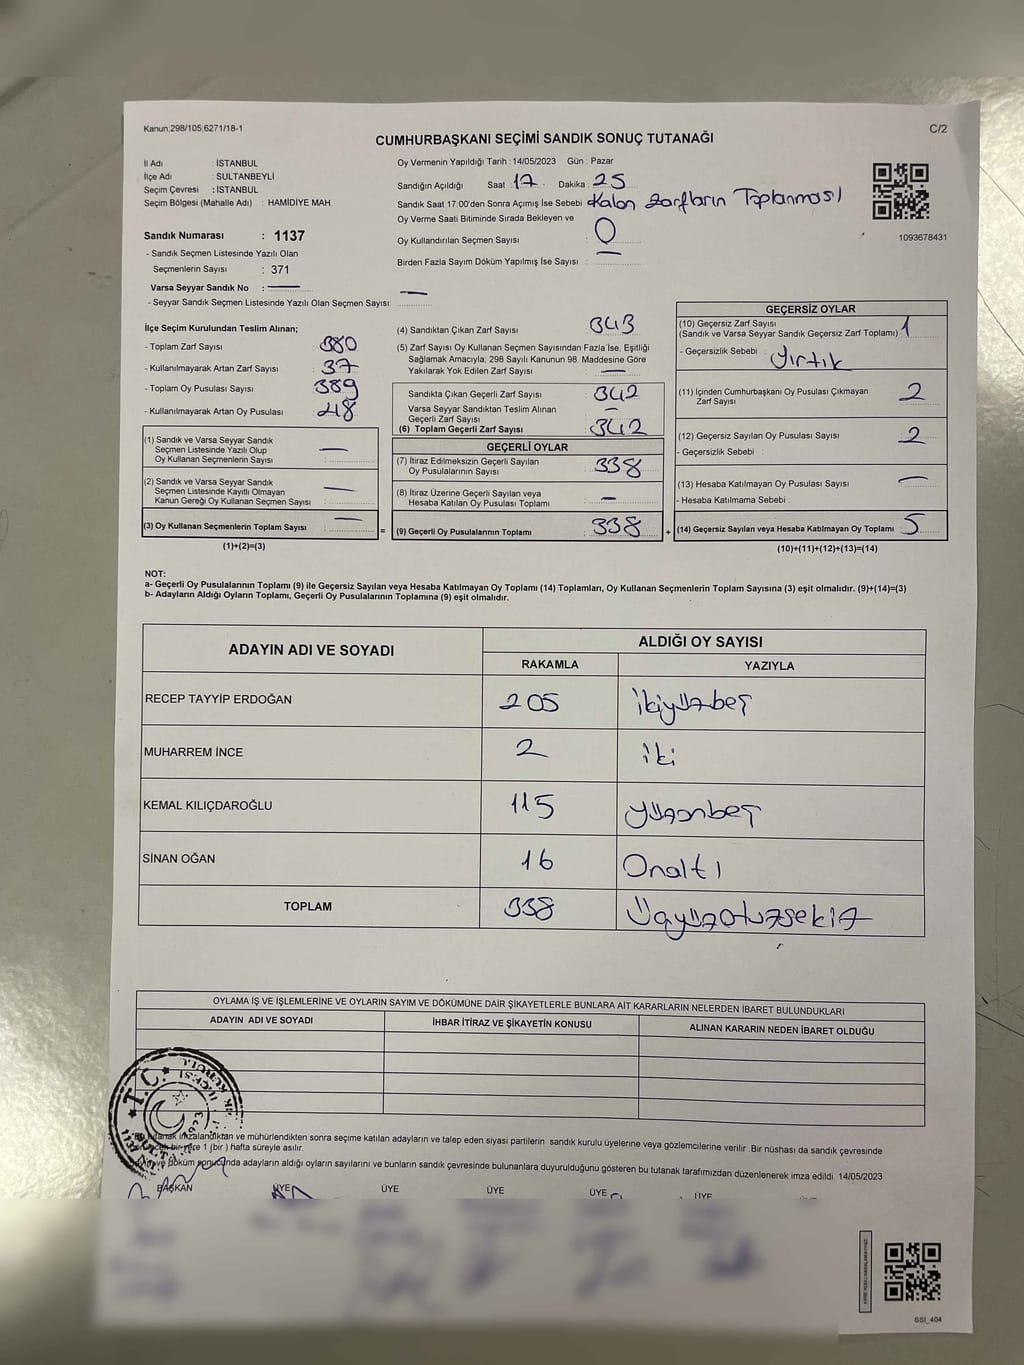 Kanun;298/105;6271/18-1
C/2
CUMHURBAŞKANI SEÇİMİ SANDIK SONUÇ TUTANAĞI
İl Adı : İSTANBUL
İlçe Adı : SULTANBEYLİ
Seçim Çevresi : İSTANBUL
Seçim Bölgesi (Mahalle Adı) : HAMİDİYE MAH.
Sandık Numarası : 1137
- Sandık Seçmen Listesinde Yazılı Olan
Seçmenlerin Sayısı : 371
Varsa Seyyar Sandık No :
- Seyyar Sandık Seçmen Listesinde Yazılı Olan Seçmen Sayısı:
Oy Vermenin Yapıldığı Tarih : 14/05/2023 Gün : Pazar
Sandığın Açıldığı Saat : 17 Dakika : 25
Sandık Saat 17:00'den Sonra Açımış İse Sebebi : Kalan zarfların Toplanması
Oy Verme Saati Bitiminde Sırada Bekleyen ve
Oy Kullandırılan Seçmen Sayısı : 0
Birden Fazla Sayım Döküm Yapılmış İse Sayısı : —
1093678431
İlçe Seçim Kurulundan Teslim Alınan;
- Toplam Zarf Sayısı : 380
- Kullanılmayarak Artan Zarf Sayısı : 37
- Toplam Oy Pusulası Sayısı : 389
- Kullanılmayarak Artan Oy Pusulası : 48
(1) Sandık ve Varsa Seyyar Sandık
Seçmen Listesinde Yazılı Olup
Oy Kullanan Seçmenlerin Sayısı : —
(2) Sandık ve Varsa Seyyar Sandık
Seçmen Listesinde Kayıtlı Olmayan
Kanun Gereği Oy Kullanan Seçmen Sayısı : —
(3) Oy Kullanan Seçmenlerin Toplam Sayısı : —
(1)+(2)=(3)
(4) Sandıktan Çıkan Zarf Sayısı : 343
(5) Zarf Sayısı Oy Kullanan Seçmen Sayısından Fazla İse, Eşitliği
Sağlamak Amacıyla; 298 Sayılı Kanunun 98. Maddesine Göre
Yakılarak Yok Edilen Zarf Sayısı : —
Sandıkta Çıkan Geçerli Zarf Sayısı : 342
Varsa Seyyar Sandıktan Teslim Alınan
Geçerli Zarf Sayısı : —
(6) Toplam Geçerli Zarf Sayısı : 342
GEÇERLİ OYLAR
(7) İtiraz Edilmeksizin Geçerli Sayılan
Oy Pusulalarının Sayısı : 338
(8) İtiraz Üzerine Geçerli Sayılan veya
Hesaba Katılan Oy Pusulası Toplamı : —
= (9) Geçerli Oy Pusulalarının Toplamı : 338
GEÇERSİZ OYLAR
(10) Geçersiz Zarf Sayısı
(Sandık ve Varsa Seyyar Sandık Geçersiz Zarf Toplamı) : 1
- Geçersizlik Sebebi : yırtık
(11) İçinden Cumhurbaşkanı Oy Pusulası Çıkmayan
Zarf Sayısı : 2
(12) Geçersiz Sayılan Oy Pusulası Sayısı : 2
- Geçersizlik Sebebi :
(13) Hesaba Katılmayan Oy Pusulası Sayısı : —
- Hesaba Katılmama Sebebi :
+ (14) Geçersiz Sayılan veya Hesaba Katılmayan Oy Toplamı : 5
(10)+(11)+(12)+(13)=(14)
NOT:
a- Geçerli Oy Pusulalarının Toplamı (9) ile Geçersiz Sayılan veya Hesaba Katılmayan Oy Toplamı (14) Toplamları, Oy Kullanan Seçmenlerin Toplam Sayısına (3) eşit olmalıdır. (9)+(14)=(3)
b- Adayların Aldığı Oyların Toplamı, Geçerli Oy Pusulalarının Toplamına (9) eşit olmalıdır.
ADAYIN ADI VE SOYADI ALDIĞI OY SAYISI
RAKAMLA YAZIYLA
RECEP TAYYİP ERDOĞAN 205 ikiyüzbeş
MUHARREM İNCE 2 iki
KEMAL KILIÇDAROĞLU 115 yüzonbeş
SİNAN OĞAN 16 Onaltı
TOPLAM 338 Üçyüzotuzsekiz
OYLAMA İŞ VE İŞLEMLERİNE VE OYLARIN SAYIM VE DÖKÜMÜNE DAİR ŞİKAYETLERLE BUNLARA AİT KARARLARIN NELERDEN İBARET BULUNDUKLARI
ADAYIN ADI VE SOYADI İHBAR İTİRAZ VE ŞİKAYETİN KONUSU ALINAN KARARIN NEDEN İBARET OLDUĞU
T.C.
imzalandıktan ve mühürlendikten sonra seçime katılan adayların ve talep eden siyasi partilerin sandık kurulu üyelerine veya gözlemcilerine verilir. Bir nüshası da sandık çevresinde
1 (bir) hafta süreyle asılır.
ve döküm sonucunda adayların aldığı oyların sayılarını ve bunların sandık çevresinde bulunanlara duyurulduğunu gösteren bu tutanak tarafımızdan düzenlenerek imza edildi. 14/05/2023
BAŞKAN ÜYE ÜYE ÜYE ÜYE ÜYE
SSI_404